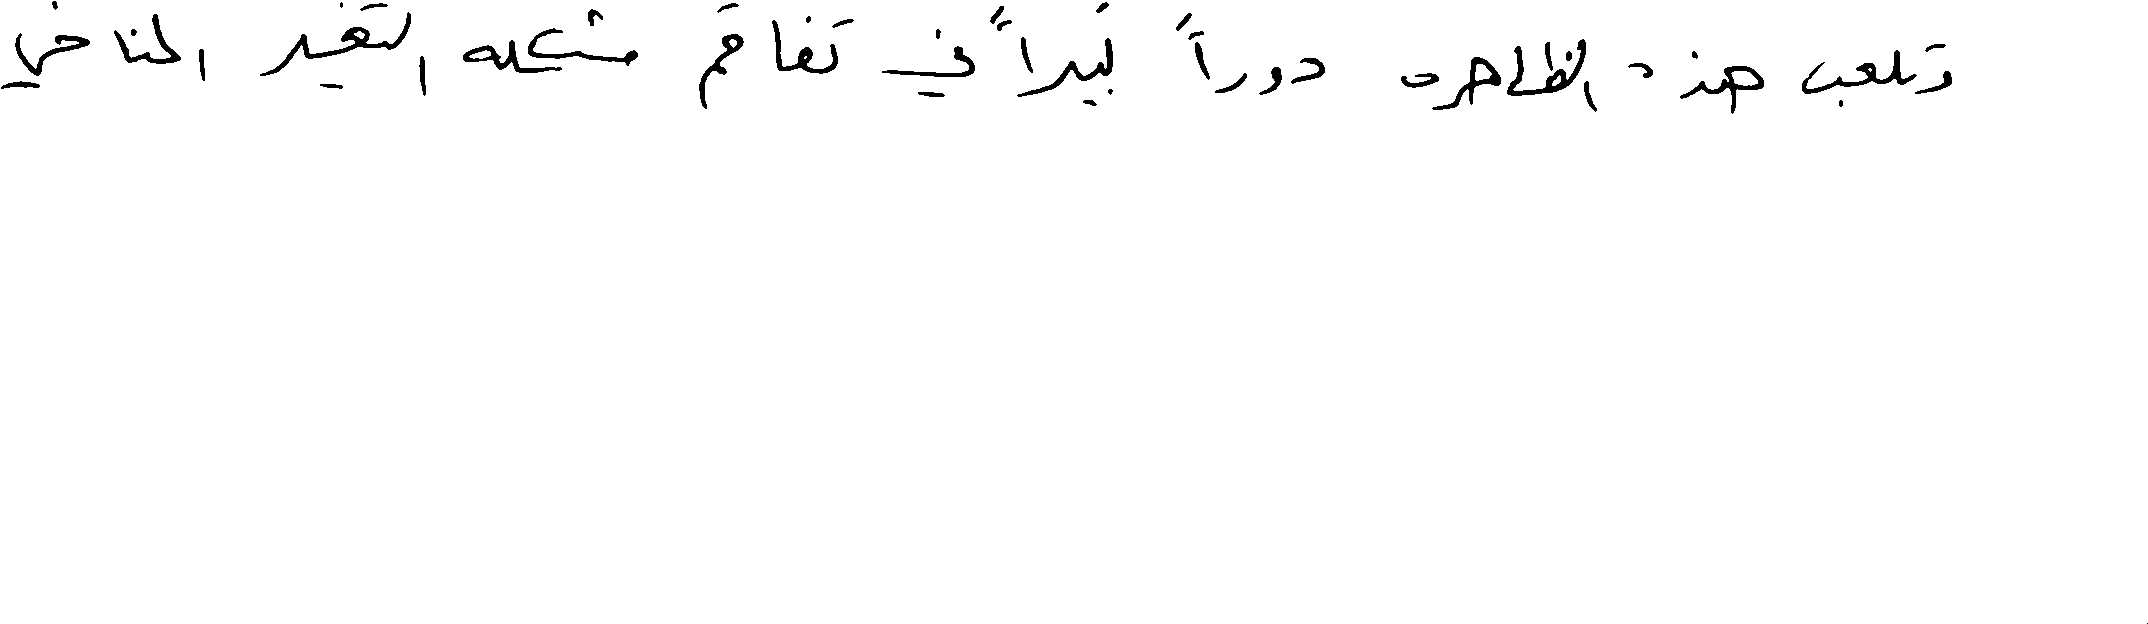 وتلعب هذه الظاهره دوراً كبيراً في تفاقم مشكله التغير المناخي